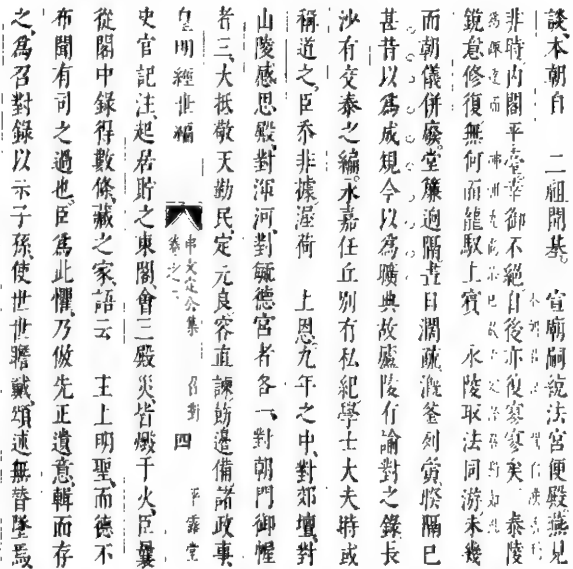 談、本朝自 二祖開基。 宣廟嗣統法宮便殿。燕見
非時內閣平臺宰御不絕自後亦復寥寥矣 泰陵
銳意修復無何而龍馭上賓 永陵取法同游未幾
而朝儀併廢。堂簾逈隔晝日濶疏。漑釜列寅㡒隔巳
甚昔以為成規今以為曠典故廬陵有諭對之錄。長
沙有交泰之編。永嘉任丘別有私紀學士大夫時或
稱道之。臣忝非據渥荷 上恩。九年之中。對郊壇。對
山陵感思殿。對渾河。對毓德宮者各一。對朝門御幄
者三。大抵敬天勤民。定元良。容直諫飭邊備諸政事
皇明經世編 申文定公集 卷之二 召對 四 平露堂
史官記注。起居貯之東閣。會三殿災。皆燬于火。臣曩
從閣中錄得數條。藏之家。語云 主上明聖。而德不
布聞有司之過也。臣為此懼。乃倣先正遺意。輯而存
之。為召對錄以示子孫。使世世瞻戴。頌述無替墜焉